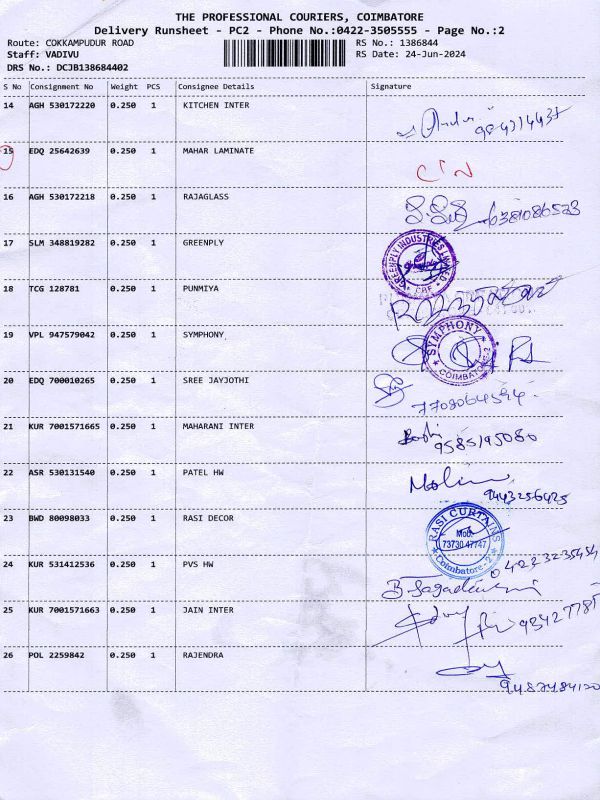 THE PROFESSIONAL COURIERS, COIMBATORE
Delivery Runsheet - PC2 - Phone No.:0422-3505555 - Page No.:2
Route: COKKAMPUDUR ROAD RS No.: 1386844
Staff: VADIVU RS Date: 24-Jun-2024
DRS No.: DCJB138684402
S No Consignment No Weight PCS Consignee Details Signature
14 AGH 530172220 0.250 1 KITCHEN INTER
15 EDQ 25642639 0.250 1 MAHAR LAMINATE
16 AGH 530172218 0.250 1 RAJAGLASS
17 SLM 348819282 0.250 1 GREENPLY GREENPLY INDUSTRIES LIMITED CBE
18 TCG 128781 0.250 1 PUNMIYA
19 VPL 947579042 0.250 1 SYMPHONY SYMPHONY COIMBATORE-2
20 EDQ 700010265 0.250 1 SREE JAYJOTHI
21 KUR 7001571665 0.250 1 MAHARANI INTER 9585195080
22 ASR 530131540 0.250 1 PATEL HW 9443256425
23 BWD 80098033 0.250 1 RASI DECOR RASI CURTAINS Mob: 73730 47747 Coimbatore-2
24 KUR 531412536 0.250 1 PVS HW 0422 3235454
25 KUR 7001571663 0.250 1 JAIN INTER
26 POL 2259842 0.250 1 RAJENDRA 9487484120